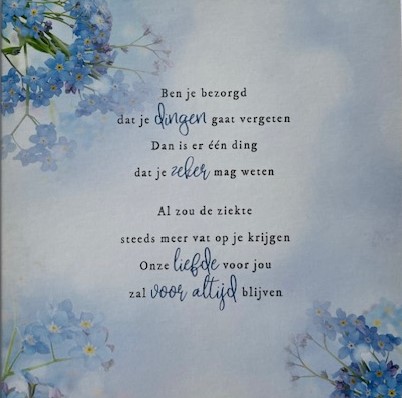 Ben je bezorgd
dat je dingen gaat vergeten
Dan is er één ding
dat je zeker mag weten
Al zou de ziekte
steeds meer vat op je krijgen
Onze liefde voor jou
zal voor altijd blijven